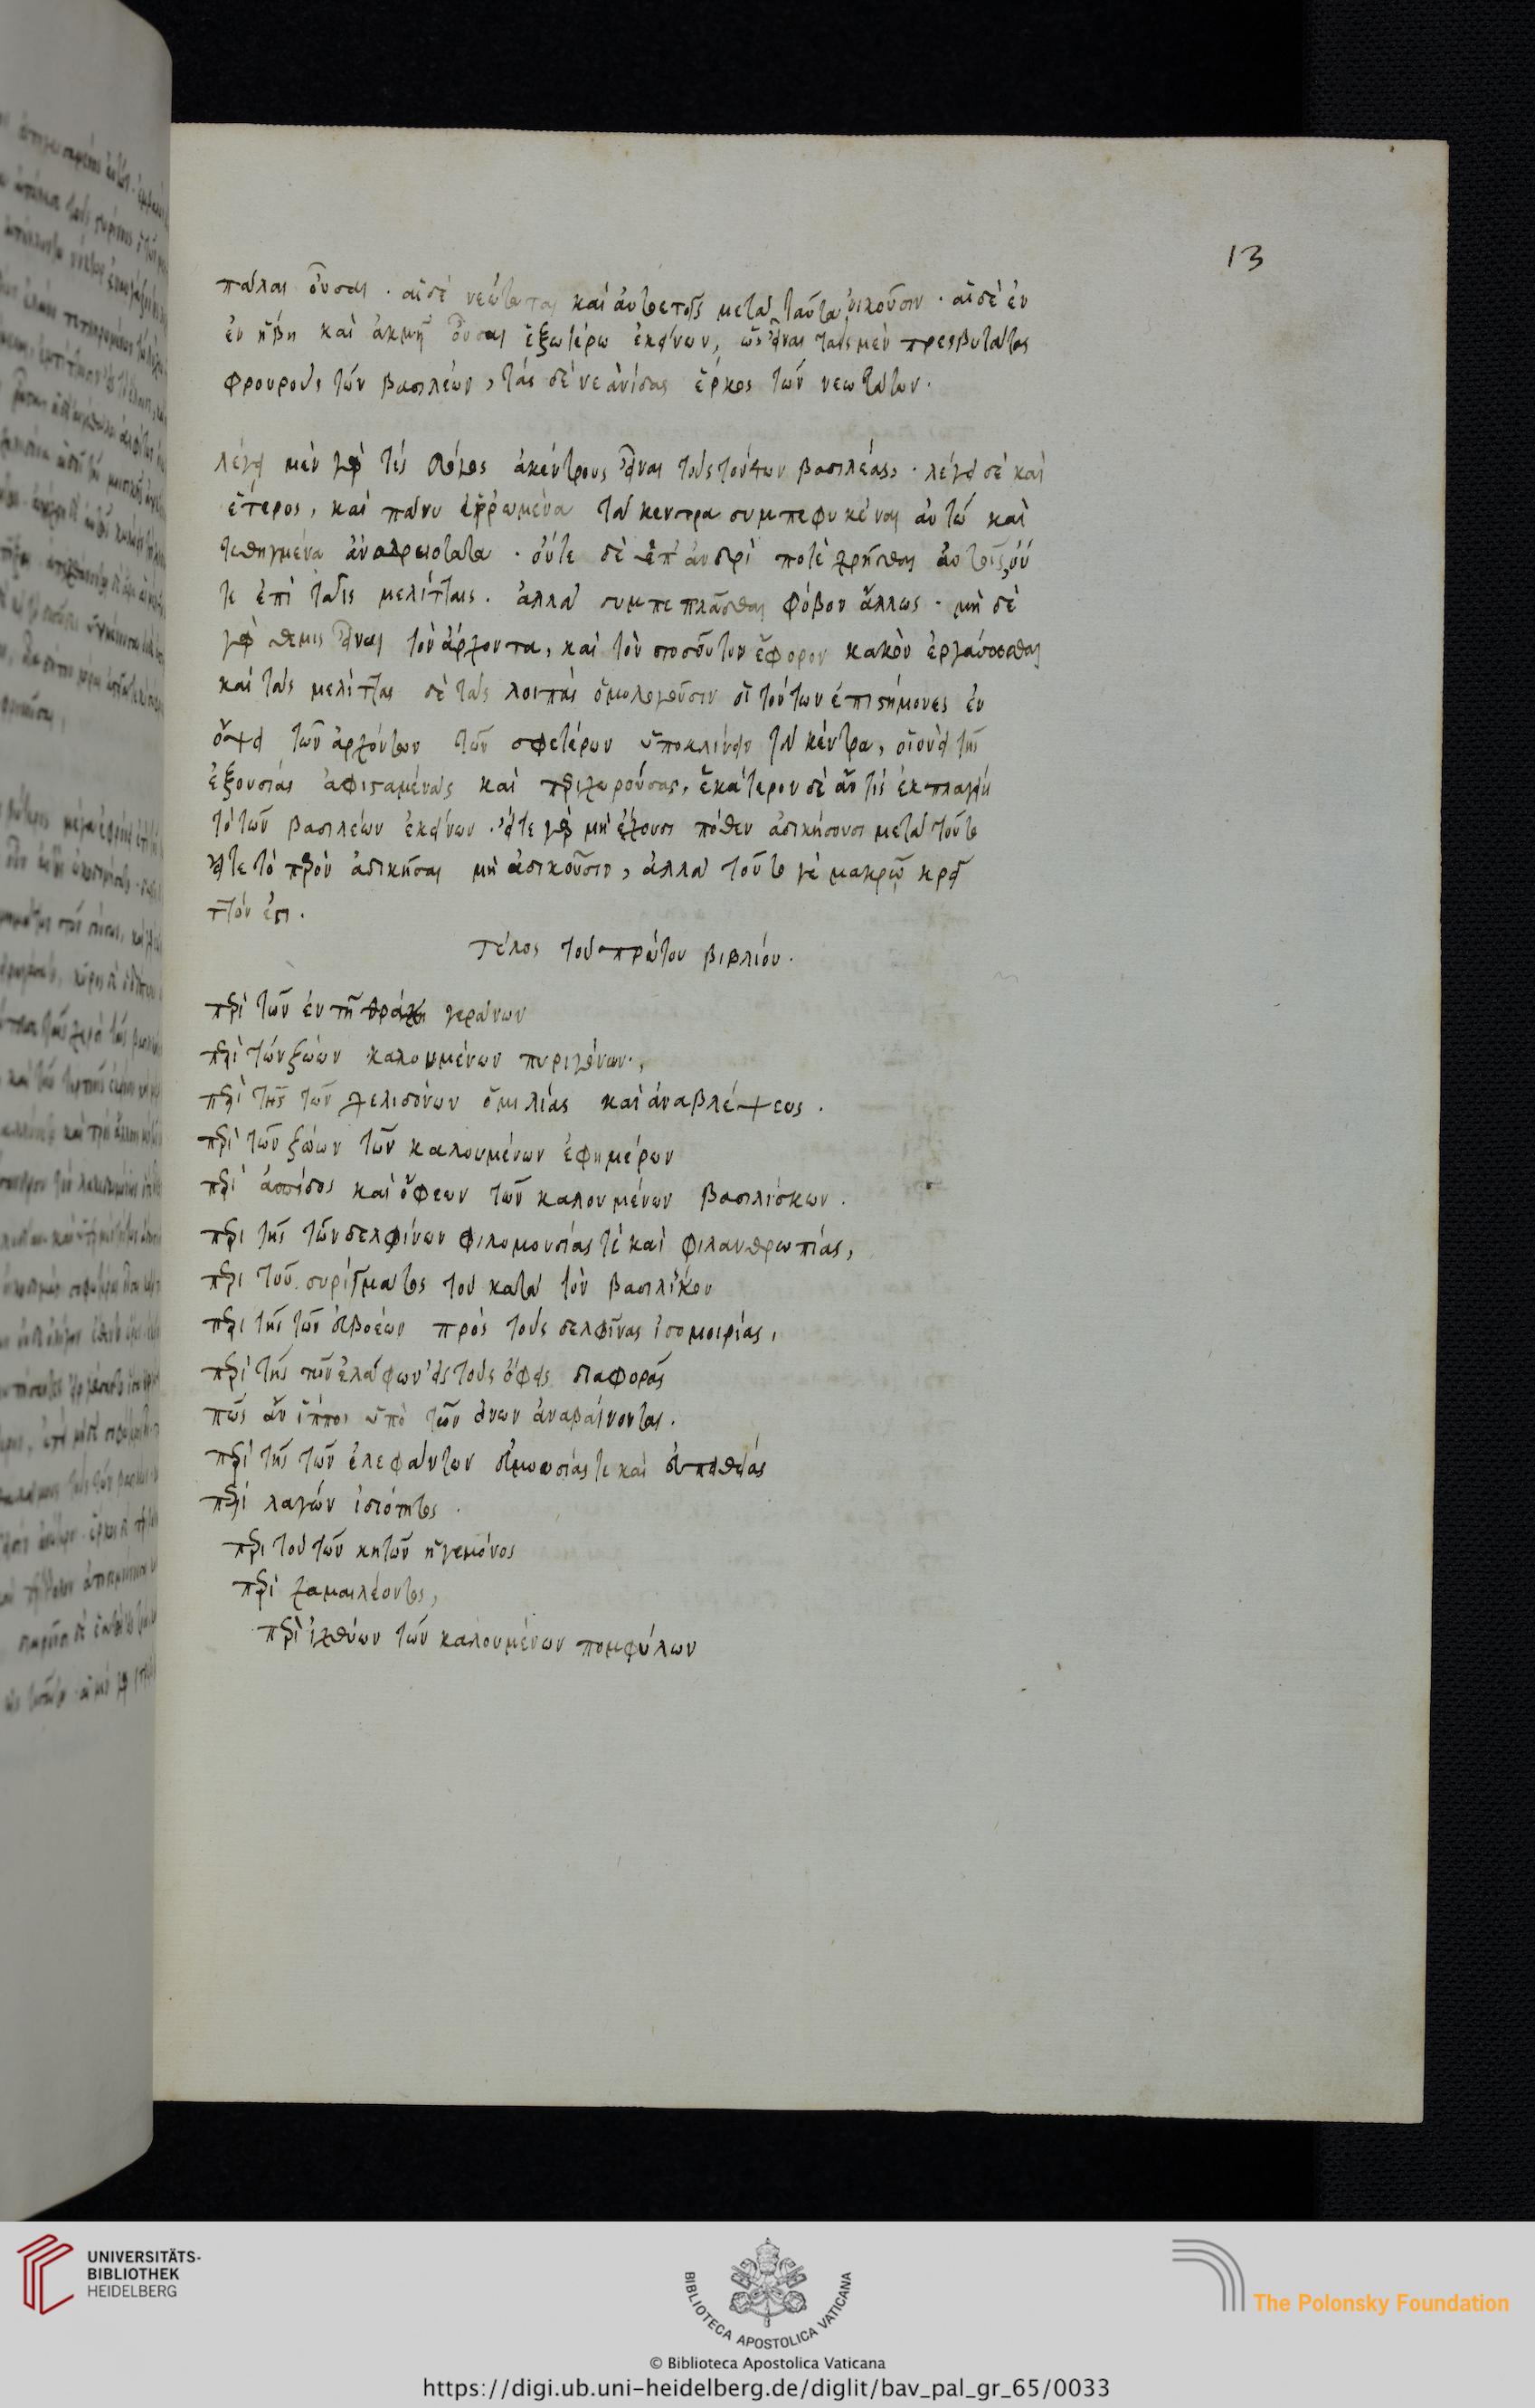 13
πάλαι οὖσαι · αἱ δὲ νεώταται καὶ αὐτετεῖς μετὰ ταύτας οἰκοῦσιν · αἱ δὲ ἐν
ἐν ἥβῃ καὶ ἀκμῇ οὖσαι ἐξωτέρω ἐκείνων, ὡς εἶναι τὰς μὲν πρεσβυτάτας
φρουροὺς τῶν βασιλέων, τὰς δὲ νεάνιδας ἕρκος τῶν νεωτάτων.
λέγει μὲν γὰρ τίς λόγος ἀκέντρους εἶναι τοὺς τούτων βασιλέας, · λέγει δὲ καὶ
ἕτερος, καὶ πάνυ ἐρρωμένα τὰ κεντρα συμπεφυκέναι αὐτῶ καὶ
τεθηγμένα ἀνδρειοτατα · οὔτε δὲ ἐπ' ἀνδρὶ ποτὲ χρῆσθαι αὐτοῖς, οὔ
τε ἐπὶ ταῖς μελίτταις. ἀλλὰ συμπεπλᾶσθαι φόβον ἄλλως · μὴ δὲ
γὰρ θεμις εἶναι τὸν ἄρχοντα, καὶ τὸν τοσούτων ἔφορον κακὸν ἐργάσασθαι
καὶ τὰς μελίττας δὲ τὰς λοιπὰς ὁμολογοῦσιν οἱ τούτων ἐπιστήμονες ἐν
ὄψει τῶν ἀρχόντων τῶν σφετέρων ὑποκλίνειν τὰ κέντρα, οἱονεὶ τῆς
ἐξουσίας ἀφισταμένας καὶ παραχωρούσας, ἑκάτερον δὲ ἄν τις ἐκπλαγείη
τὸ τῶν βασιλέων ἐκείνων · εἴτε γὰρ μὴ ἔχουσι πόθεν ἀδικήσουσι μετὰ τοῦτο
εἴτε τὸ παρὸν ἀδικῆσαι μὴ ἀδικοῦσιν, ἀλλὰ τοῦτο γὲ μακρῷ κρεῖ
ττόν ἐστι.
Τέλος τοῦ πρώτου βιβλίου.
περὶ τῶν ἐν τῇ θράκῃ γεράνων
περὶ τῶν ζώων καλουμένων πυριγόνων,
περὶ τῆς τῶν χελιδόνων ὁμιλίας καὶ ἀναβλέψεως.
περὶ τῶν ζώων τῶν καλουμένων ἐφημέρων
περὶ ἀσπίδος καὶ ὄφεων τῶν καλουμένων βασιλίσκων.
περι τῆς τῶν δελφίνων φιλομουσίας τὲ καὶ φιλανθρωπίας,
περι τοῦ συρίγματος τοῦ κατὰ τὸν βασιλίσκον
περι τῆς τῶν ἀβοέων πρὸς τοὺς δελφῖνας ἰσομοιρίας,
περὶ τῆς τῶν ἐλάφων εἰς τοὺς ὄφεις διαφορᾶς
πῶς ἂν ἵπποι ὑπὸ τῶν ὄνων ἀναβαίνονται.
περὶ τῆς τῶν ἐλεφάντων εὐμουσίας τε καὶ εὐπειθείας
περὶ λαγῶν ἰδιότητος.
περι τοῦ τῶν κητῶν ἡγεμόνος
περὶ χαμαιλέοντος,
περὶ ἰχθύων τῶν καλουμένων πομφύλων
UNIVERSITÄTS-
BIBLIOTHEK
HEIDELBERG
BIBLIOTECA APOSTOLICA VATICANA
The Polonsky Foundation
© Biblioteca Apostolica Vaticana
https://digi.ub.uni-heidelberg.de/diglit/bav_pal_gr_65/0033